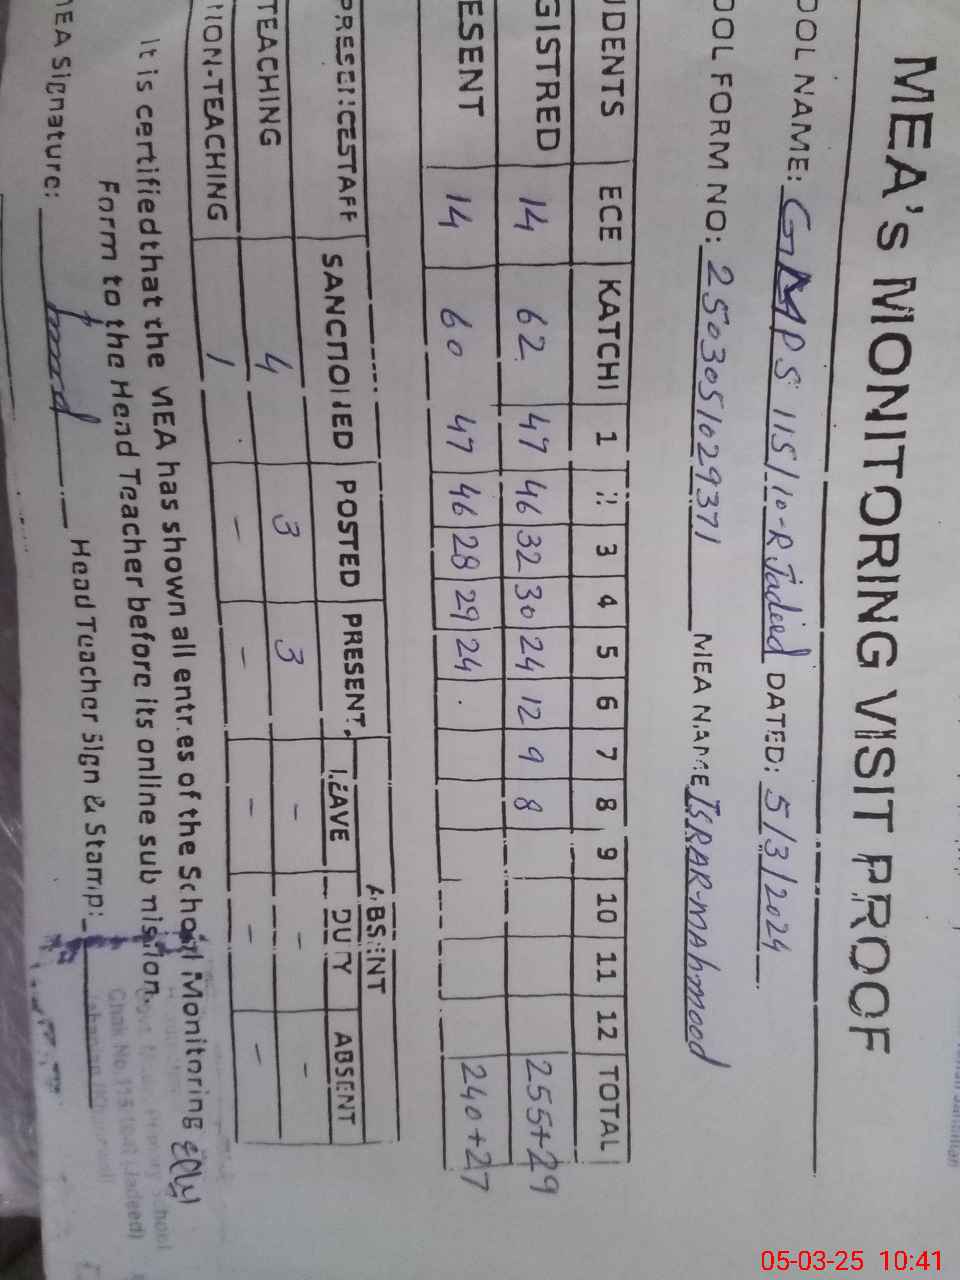 MEA's MONITORING VISIT PROOF
OOL NAME: GMPS 115/10-R Jadeed DATED: 5/3/2024
OOL FORM NO: 2503051029371 MEA NAME ISRAR-MAhmood
UDENTS ECE KATCHI 1 2 3 4 5 6 7 8 9 10 11 12 TOTAL
GISTRED 14 62 47 46 32 30 24 12 9 8 255+29
ESENT 14 60 47 46 28 29 24 240+27
PRESENCE STAFF SANCTIONED POSTED PRESENT ABSENT
LEAVE DUTY ABSENT
TEACHING 4 3 3 - - -
NON-TEACHING 1 - - - - -
It is certified that the MEA has shown all entries of the School Monitoring
Form to the Head Teacher before its online submission.
MEA Signature: Head Teacher Sign & Stamp:
School
Chak No. 115/10-R (Jadeed)
05-03-25 10:41